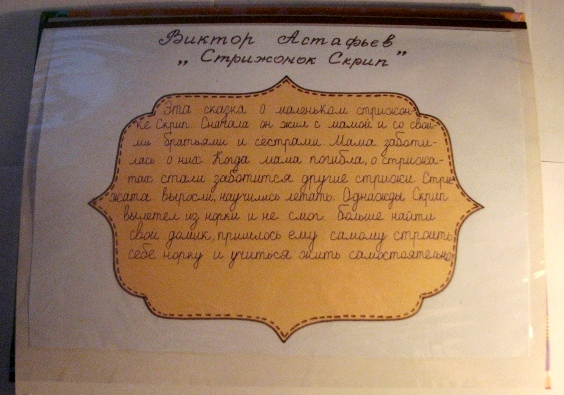 Виктор Астафьев
„Стрижонок Скрип"
Эта сказка о маленьком стрижон-
ке Скрип. Сначала он жил с мамой и со свои-
ми братьями и сёстрами. Мама заботи-
лась о них. Когда мама погибла, о стрижа-
тах стали заботится другие стрижи. Стри-
жата выросли, научились летать. Однажды Скрип
вылетел из норки и не смог больше найти
свой домик, пришлось ему самому строить
себе норку и учиться жить самостоятельно.